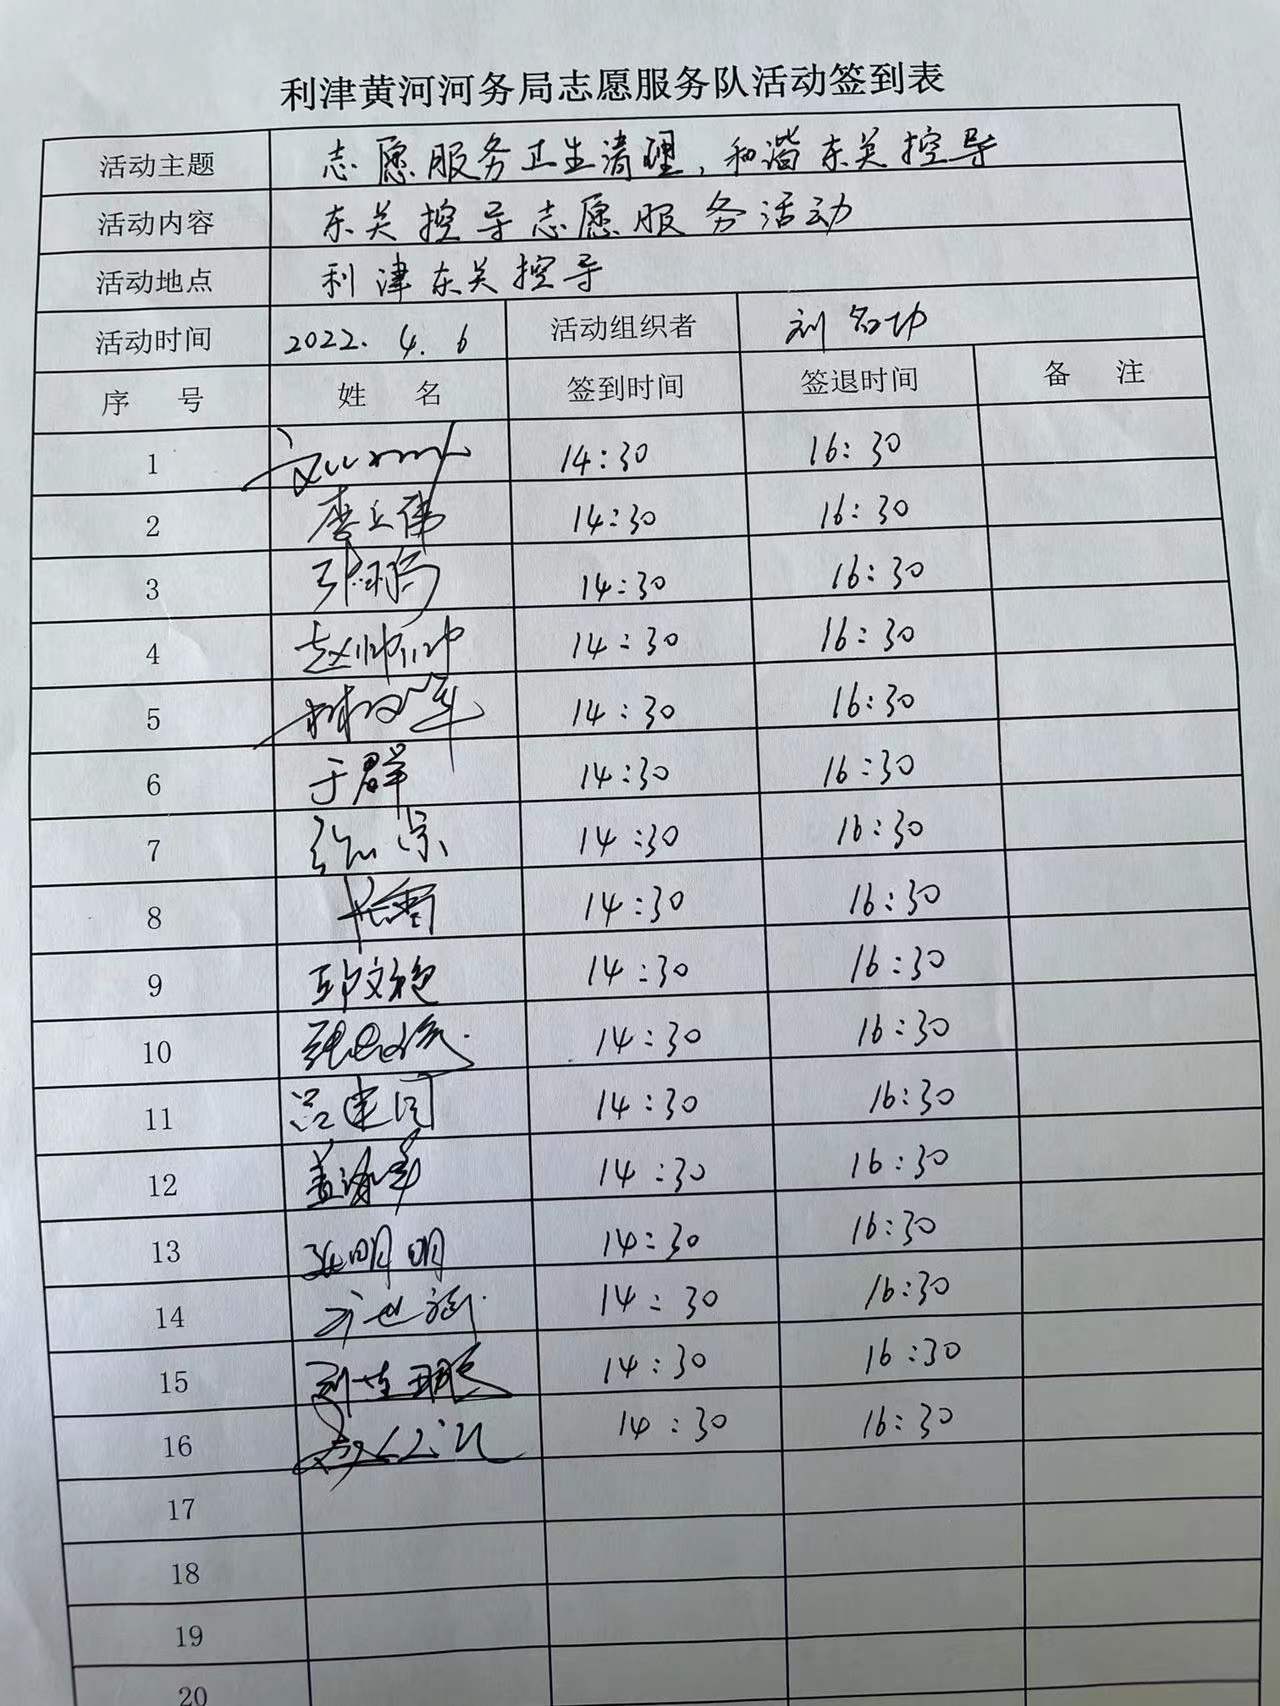 利津黄河河务局志愿服务队活动签到表
活动主题 志愿服务卫生清理，和谐东关控导
活动内容 东关控导志愿服务活动
活动地点 利津东关控导
活动时间 2022.4.6 活动组织者 刘名功
序 号 姓 名 签到时间 签退时间 备 注
1 14:30 16:30
2 李立伟 14:30 16:30
3 张鹏 14:30 16:30
4 赵帅帅 14:30 16:30
5 14:30 16:30
6 于群 14:30 16:30
7 14:30 16:30
8 14:30 16:30
9 14:30 16:30
10 14:30 16:30
11 吕建国 14:30 16:30
12 14:30 16:30
13 张明明 14:30 16:30
14 14:30 16:30
15 14:30 16:30
16 14:30 16:30
17
18
19
20